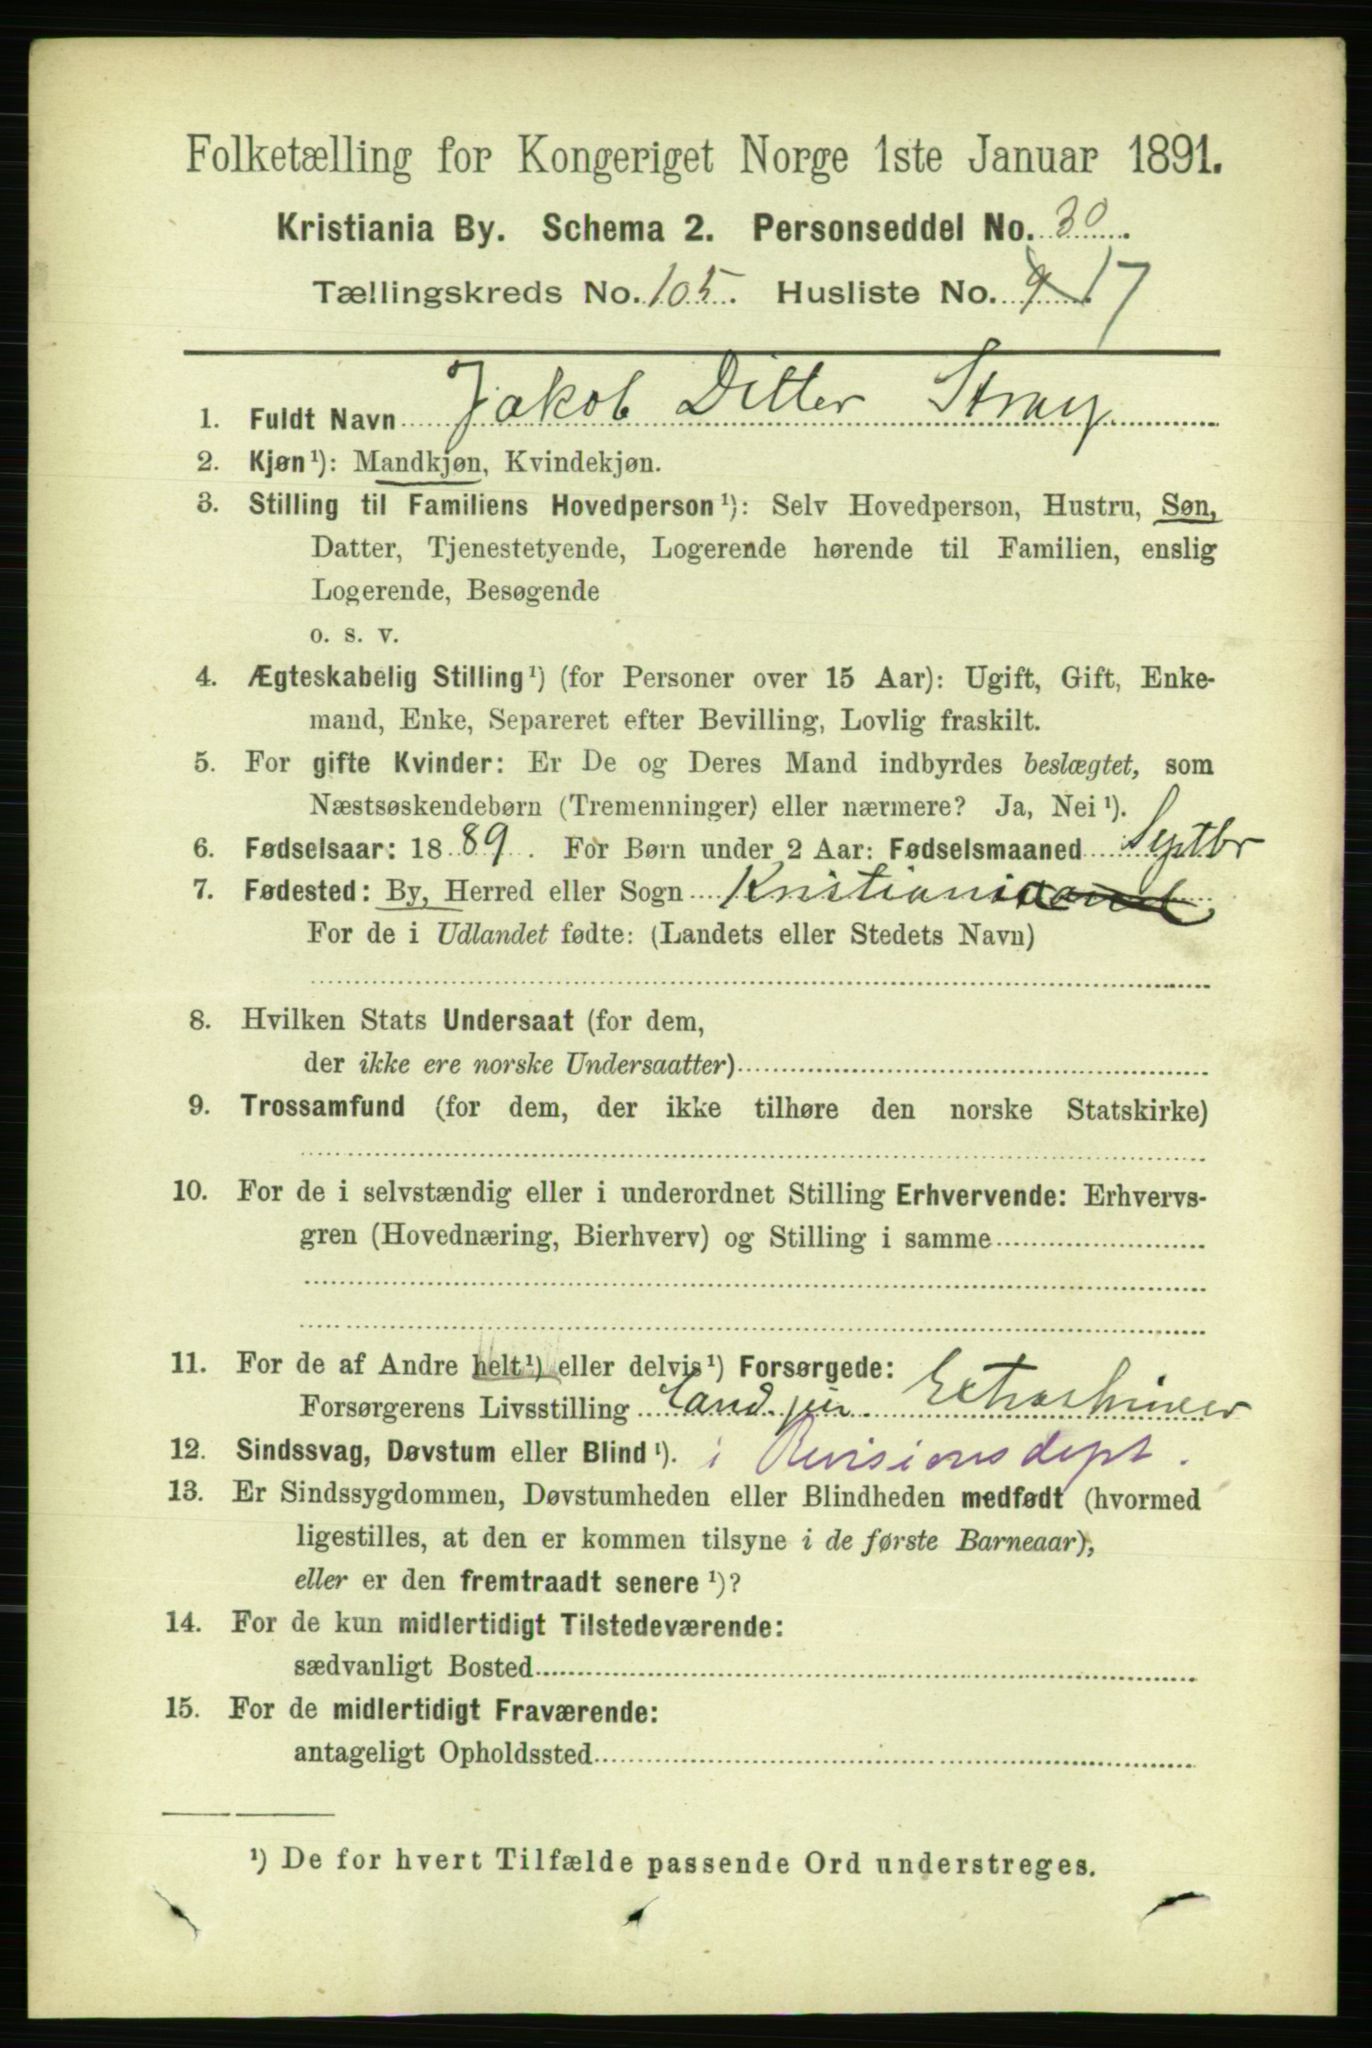 Folketælling for Kongeriget Norge 1ste Januar 1891.
Kristiania By. Schema 2. Personseddel No. 30.
Tællingskreds No. 105. Husliste No. 9 17
1. Fuldt Navn Jakob Ditler Stray
2. Kjøn¹): Mandkjøn, Kvindekjøn.
3. Stilling til Familiens Hovedperson¹): Selv Hovedperson, Hustru, Søn,
Datter, Tjenestetyende, Logerende hørende til Familien, enslig
Logerende, Besøgende
o. s. v.
4. Ægteskabelig Stilling¹) (for Personer over 15 Aar): Ugift, Gift, Enke-
mand, Enke, Separeret efter Bevilling, Lovlig fraskilt.
5. For gifte Kvinder: Er De og Deres Mand indbyrdes beslægtet, som
Næstsøskendebørn (Tremenninger) eller nærmere? Ja, Nei¹).
6. Fødselsaar: 1889. For Børn under 2 Aar: Fødselsmaaned Septbr
7. Fødested: By, Herred eller Sogn Kristiansand
For de i Udlandet fødte: (Landets eller Stedets Navn)
8. Hvilken Stats Undersaat (for dem,
der ikke ere norske Undersaatter)
9. Trossamfund (for dem, der ikke tilhøre den norske Statskirke)
10. For de i selvstændig eller i underordnet Stilling Erhvervende: Erhvervs-
gren (Hovednæring, Bierhverv) og Stilling i samme
11. For de af Andre helt¹) eller delvis¹) Forsørgede:
Forsørgerens Livsstilling Cand. jur. Extraskriver
12. Sindssvag, Døvstum eller Blind¹). i Revisionsdept.
13. Er Sindssygdommen, Døvstumheden eller Blindheden medfødt (hvormed
ligestilles, at den er kommen tilsyne i de første Barneaar),
eller er den fremtraadt senere¹)?
14. For de kun midlertidigt Tilstedeværende:
sædvanligt Bosted
15. For de midlertidigt Fraværende:
antageligt Opholdssted
¹) De for hvert Tilfælde passende Ord understreges.